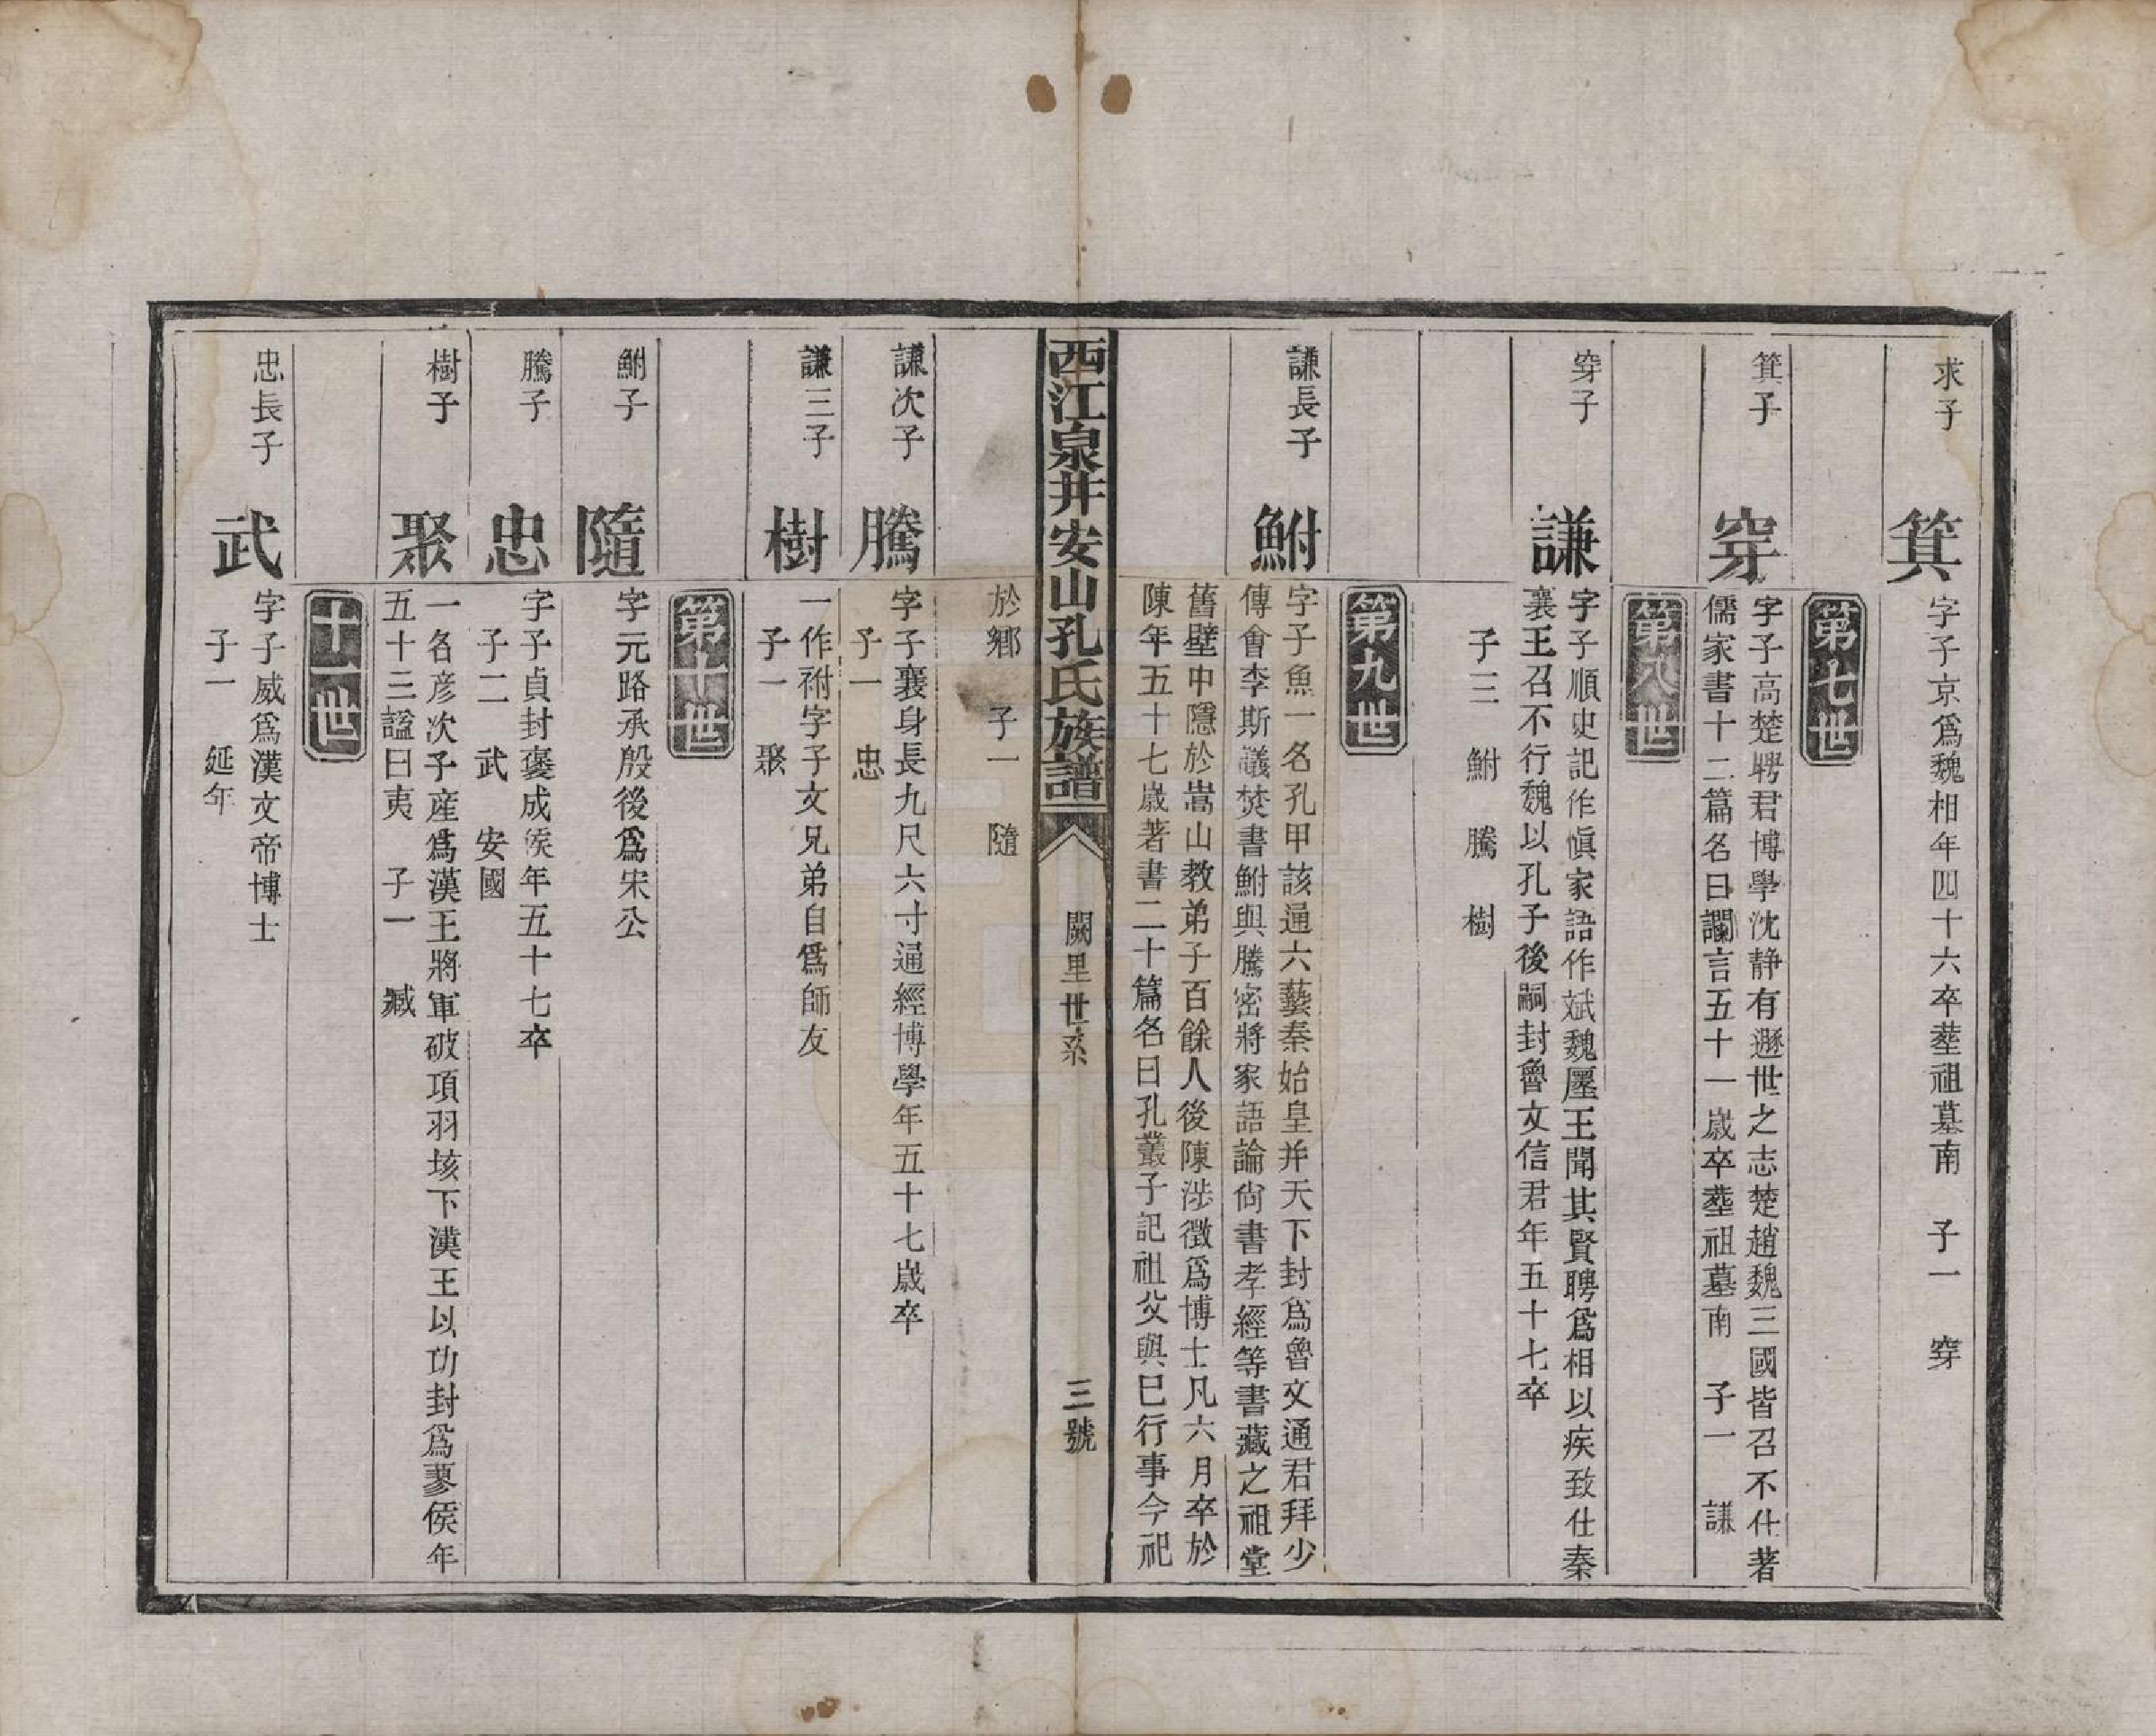 求子
箕
字子京爲魏相年四十六卒塟祖墓南 子一 穿
第七世
箕子
穿
字子高楚聘君博學沈静有遯世之志楚趙魏三國皆召不仕著
儒家書十二篇名曰讕言五十一歲卒塟祖墓南 子一 謙
第八世
穿子
謙
字子順史記作愼家語作斌魏厘王聞其賢聘爲相以疾致仕秦
襄王召不行魏以孔子後嗣封魯文信君年五十七卒
子三 鮒 騰 樹
第九世
謙長子
鮒
字子魚一名孔甲該通六藝秦始皇并天下封爲魯文通君拜少
傅會李斯議焚書鮒與騰密將家語論尙書孝經等書藏之祖堂
舊壁中隱於嵩山教弟子百餘人後陳涉徵爲博士凡六月卒於
陳年五十七歲著書二十篇名曰孔叢子記祖父與巳行事今祀
西江泉井安山孔氏族譜
闕里世系
三號
於鄉 子一 隨
謙次子
騰
字子襄身長九尺六寸通經博學年五十七歲卒
子一 忠
謙三子
樹
一作祔字子文兄弟自爲師友
子一 聚
第十世
鮒子
隨
字元路承殷後爲宋公
騰子
忠
字子貞封褒成侯年五十七卒
子二 武 安國
樹子
聚
一名彦次子産爲漢王將軍破項羽垓下漢王以功封爲蓼侯年
五十三諡曰夷 子一 臧
十一世
忠長子
武
字子威爲漢文帝博士
子一 延年